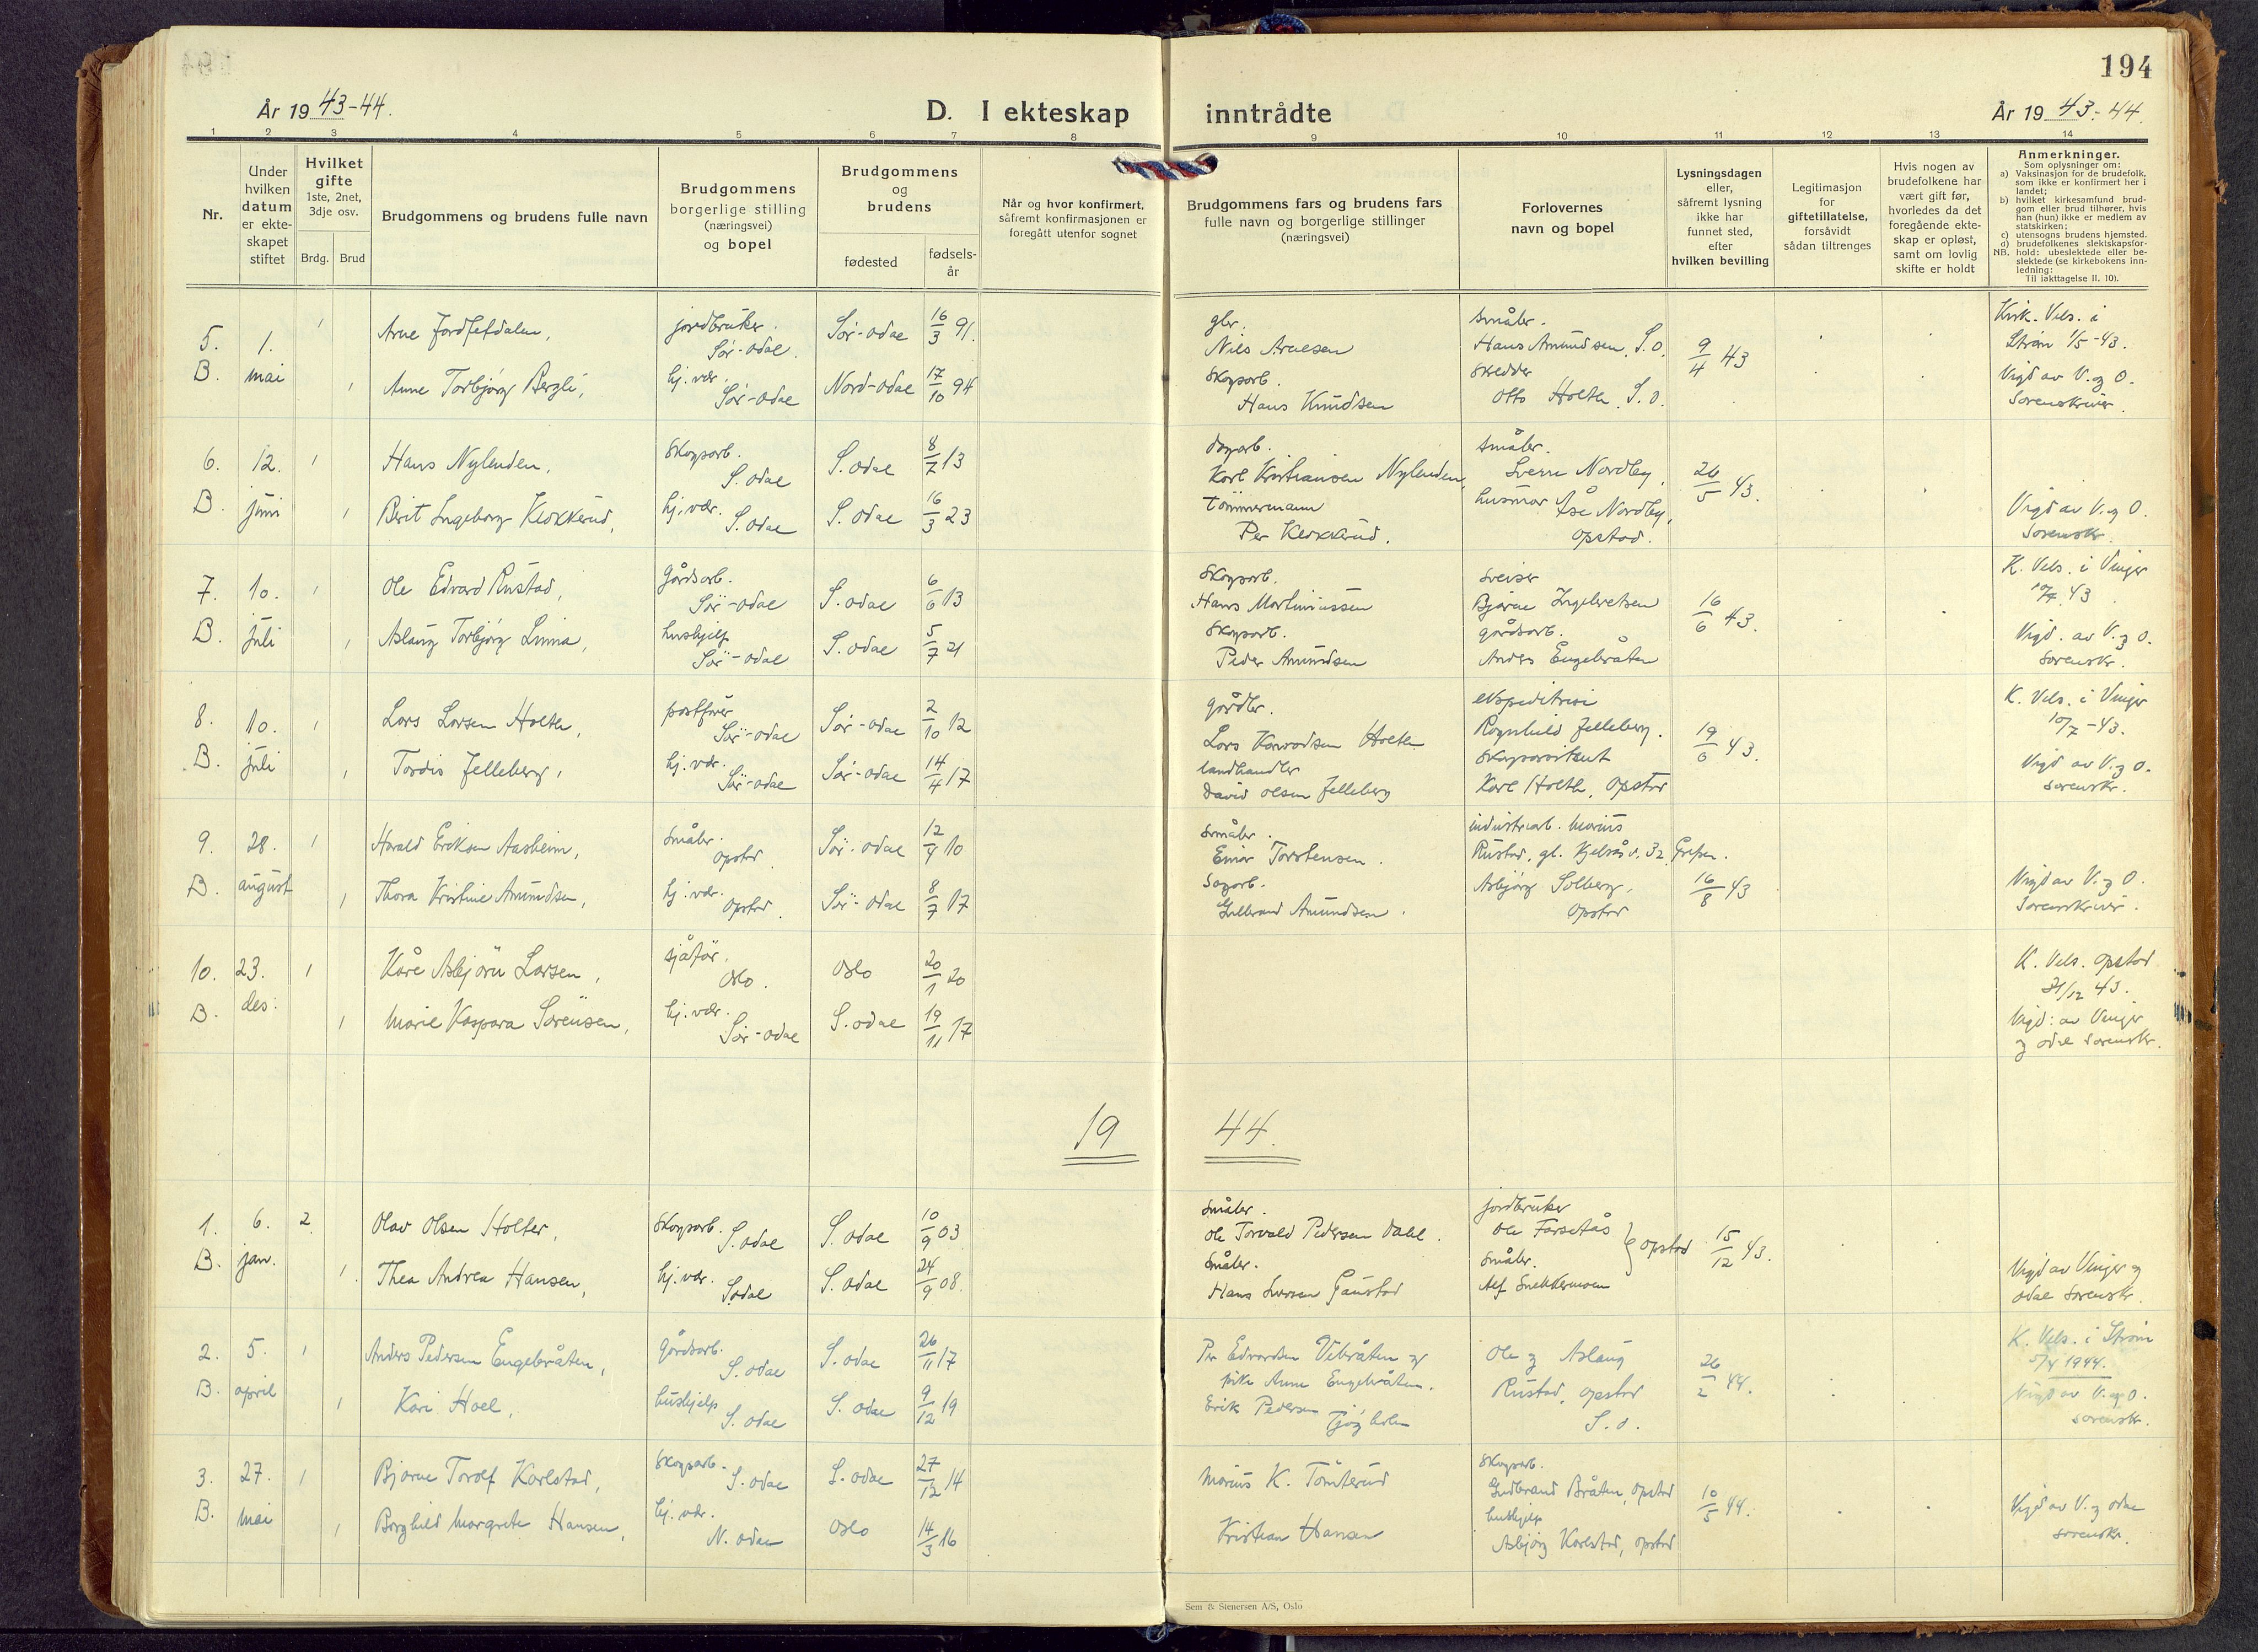 194
År 19 43-44.
D. I ekteskap inntrådte
År 19 43.-44.
1 2 3 4 5 6 7 8 9 10 11 12 13 14
Nr.
Under
hvilken
datum
er ekte-
skapet
stiftet
Hvilket
gifte
1ste, 2net,
3dje osv.
Brdg. Brud
Brudgommens og brudens fulle navn
Brudgommens
borgerlige stilling
(næringsvei)
og bopel
Brudgommens
og
brudens
fødested
fødsels-
år
Når og hvor konfirmert,
såfremt konfirmasjonen er
foregått utenfor sognet
Brudgommens fars og brudens fars
fulle navn og borgerlige stillinger
(næringsvei)
Forlovernes
navn og bopel
Lysningsdagen
eller,
såfremt lysning
ikke har
funnet sted,
efter
hvilken bevilling
Legitimasjon
for
giftetillatelse,
forsåvidt
sådan tiltrenges
Hvis nogen av
brudefolkene har
vært gift før,
hvorledes da det
foregående ekte-
skap er opløst,
samt om lovlig
skifte er holdt
Anmerkninger.
Som oplysninger om:
a) Vaksinasjon for de brudefolk,
som ikke er konfirmert her i
landet;
b) hvilket kirkesamfund brud-
gom eller brud tilhører, hvis
han (hun) ikke er medlem av
statskirken;
c) utensogns brudens hjemsted.
d) brudefolkenes slektskapsfor-
NB. hold: ubeslektede eller be-
slektede (se kirkebokens inn-
ledning:
Til iakttagelse II. 10).
5. 1. 1 Arne jordbruker. Sør-Odal 16/3 91.
Sør-Odal.
B. mai 1 Anne Torbjørg Bergli, hj.vær. Nord-Odal 17/10 94
Sør-Odal
Nils Arnesen
Skogsarb.
Hans Knudsen
småbr.
Hans Amundsen, S.O.
Skredder
Otto Holth, S.O.
9/4 43
Kirk. Vels. i
Strøm 1/5-43.
Vigd av V. og O.
Sorenskriver.
6. 12. 1 Hans Nylenden, Skogsarb. S. Odal 8/7 13
S. Odal
B. juni 1 Berit Ingeborg Klokkerud, hj.vær. S. Odal 16/3 23
S. Odal
Karl Kristiansen Nylenden,
tømmermann
Per Klokkerud.
småbr.
Sverre Nordby,
husmor Åse Nordby,
Opstad.
26/5 43.
Vigd av V. og O.
Sorenskr.
7. 10. 1 Ole Edvard Rustad, gårdsarb. S. Odal 6/6 13
Sør-Odal
B. juli 1 Aslaug Torbjørg Linna, hushjelp S. Odal 5/7 21
Sør-Odal
Skogsarb.
Hans Martiniussen
Skogsarb.
Peder Amundsen
Sveiser
Bjarne Ingebretsen
gårdsarb.
Anders Engebråten
16/6 43.
K. Vels. i Vinger
10/7 43
Vigd. av V. og O.
Sorenskr.
8. 10. 1 Lars Larsen Holth, postfører Sør-Odal 2/10 12
Sør-Odal
B. juli 1 Tordis Jelleberg, hj.vær. Sør-Odal 14/4 17
Sør-Odal
gårdbr.
Lars Holth
landhandler
David Olsen Jelleberg
ekspeditrise
Ragnhild Jelleberg.
Karl Holth, Opstad
19/6 43.
K. Vels. i Vinger
10/7-43.
Vigd av V. og O.
Sorenskr.
9. 28. 1 Harald Eriksen Aasheim, Småbr. Sør-Odal 12/4 10
Opstad.
B. august 1 Thora Kristine Amundsen, hj.vær. Sør-Odal 8/7 17
Opstad.
Småbr.
Einar Torstensen.
Sagarb.
Gulbrand Amundsen.
industriarb. Marius
Rustad, gl. Kjelsåsv. 32, Grefsen.
Asbjørg Solberg,
Opstad
16/8 43
Vigd av V. og O.
Sorenskriver.
10. 23. 1 Kåre Asbjørn Larsen, sjåfør. Oslo 20/1 20
Oslo.
B. des. 1 Marie Kaspara Sørensen, hj.vær. S. Odal 19/11 17
Sør-Odal
K. Vels. Opstad
/12 43.
Vigd: av Vinger
og Odal Sorenskr.
19 44.
1. 6. 2. Olav Olsen Holter, Skogsarb. S. Odal 10/9 03
S. Odal
B. jan. 1. Thea Andrea Hansen, hj.vær. S. Odal 24/9 08.
S. Odal
Småbr.
Ole Torvald Pedersen Dahl.
Småbr.
Hans Iversen Gaustad
jordbruker
Ole Farsetås
Småbr.
Alf Snekkermoen
} Opstad
15/12 43.
Vigd av Vinger og
Odal Sorenskr.
2. 5. 1 Anders Pedersen Engebråten, gårdsarb. S. Odal 26/11 17
S. Odal
B. april 1 Kari Hoel, hushjelp S. Odal 9/12 19
S. Odal
Per Edvardsen Vebråten og
pike Anne Engebråten.
Erik Pedersen
Ole og Aslaug
Rustad, Opstad
S.O.
26/2 44.
K. Vels. i Strøm
5/4 1944.
Vigd av V. og O.
Sorenskr.
3. 27. 1 Bjarne Torolf Karlstad, Skogsarb. S. Odal 27/12 14
S. Odal
B. mai 1 Borghild Margrete Hansen, hj.vær. Oslo 14/3 16
N. Odal
Marius K. Tomterud
Kristian Hansen
Skogsarb.
Gudbrand Bråten, Opstad
hushjelp
Asbjørg Karlstad, Opstad
10/5 44.
Vigd av V. og Odal
Sorenskr.
Sem & Stenersen A/S, Oslo